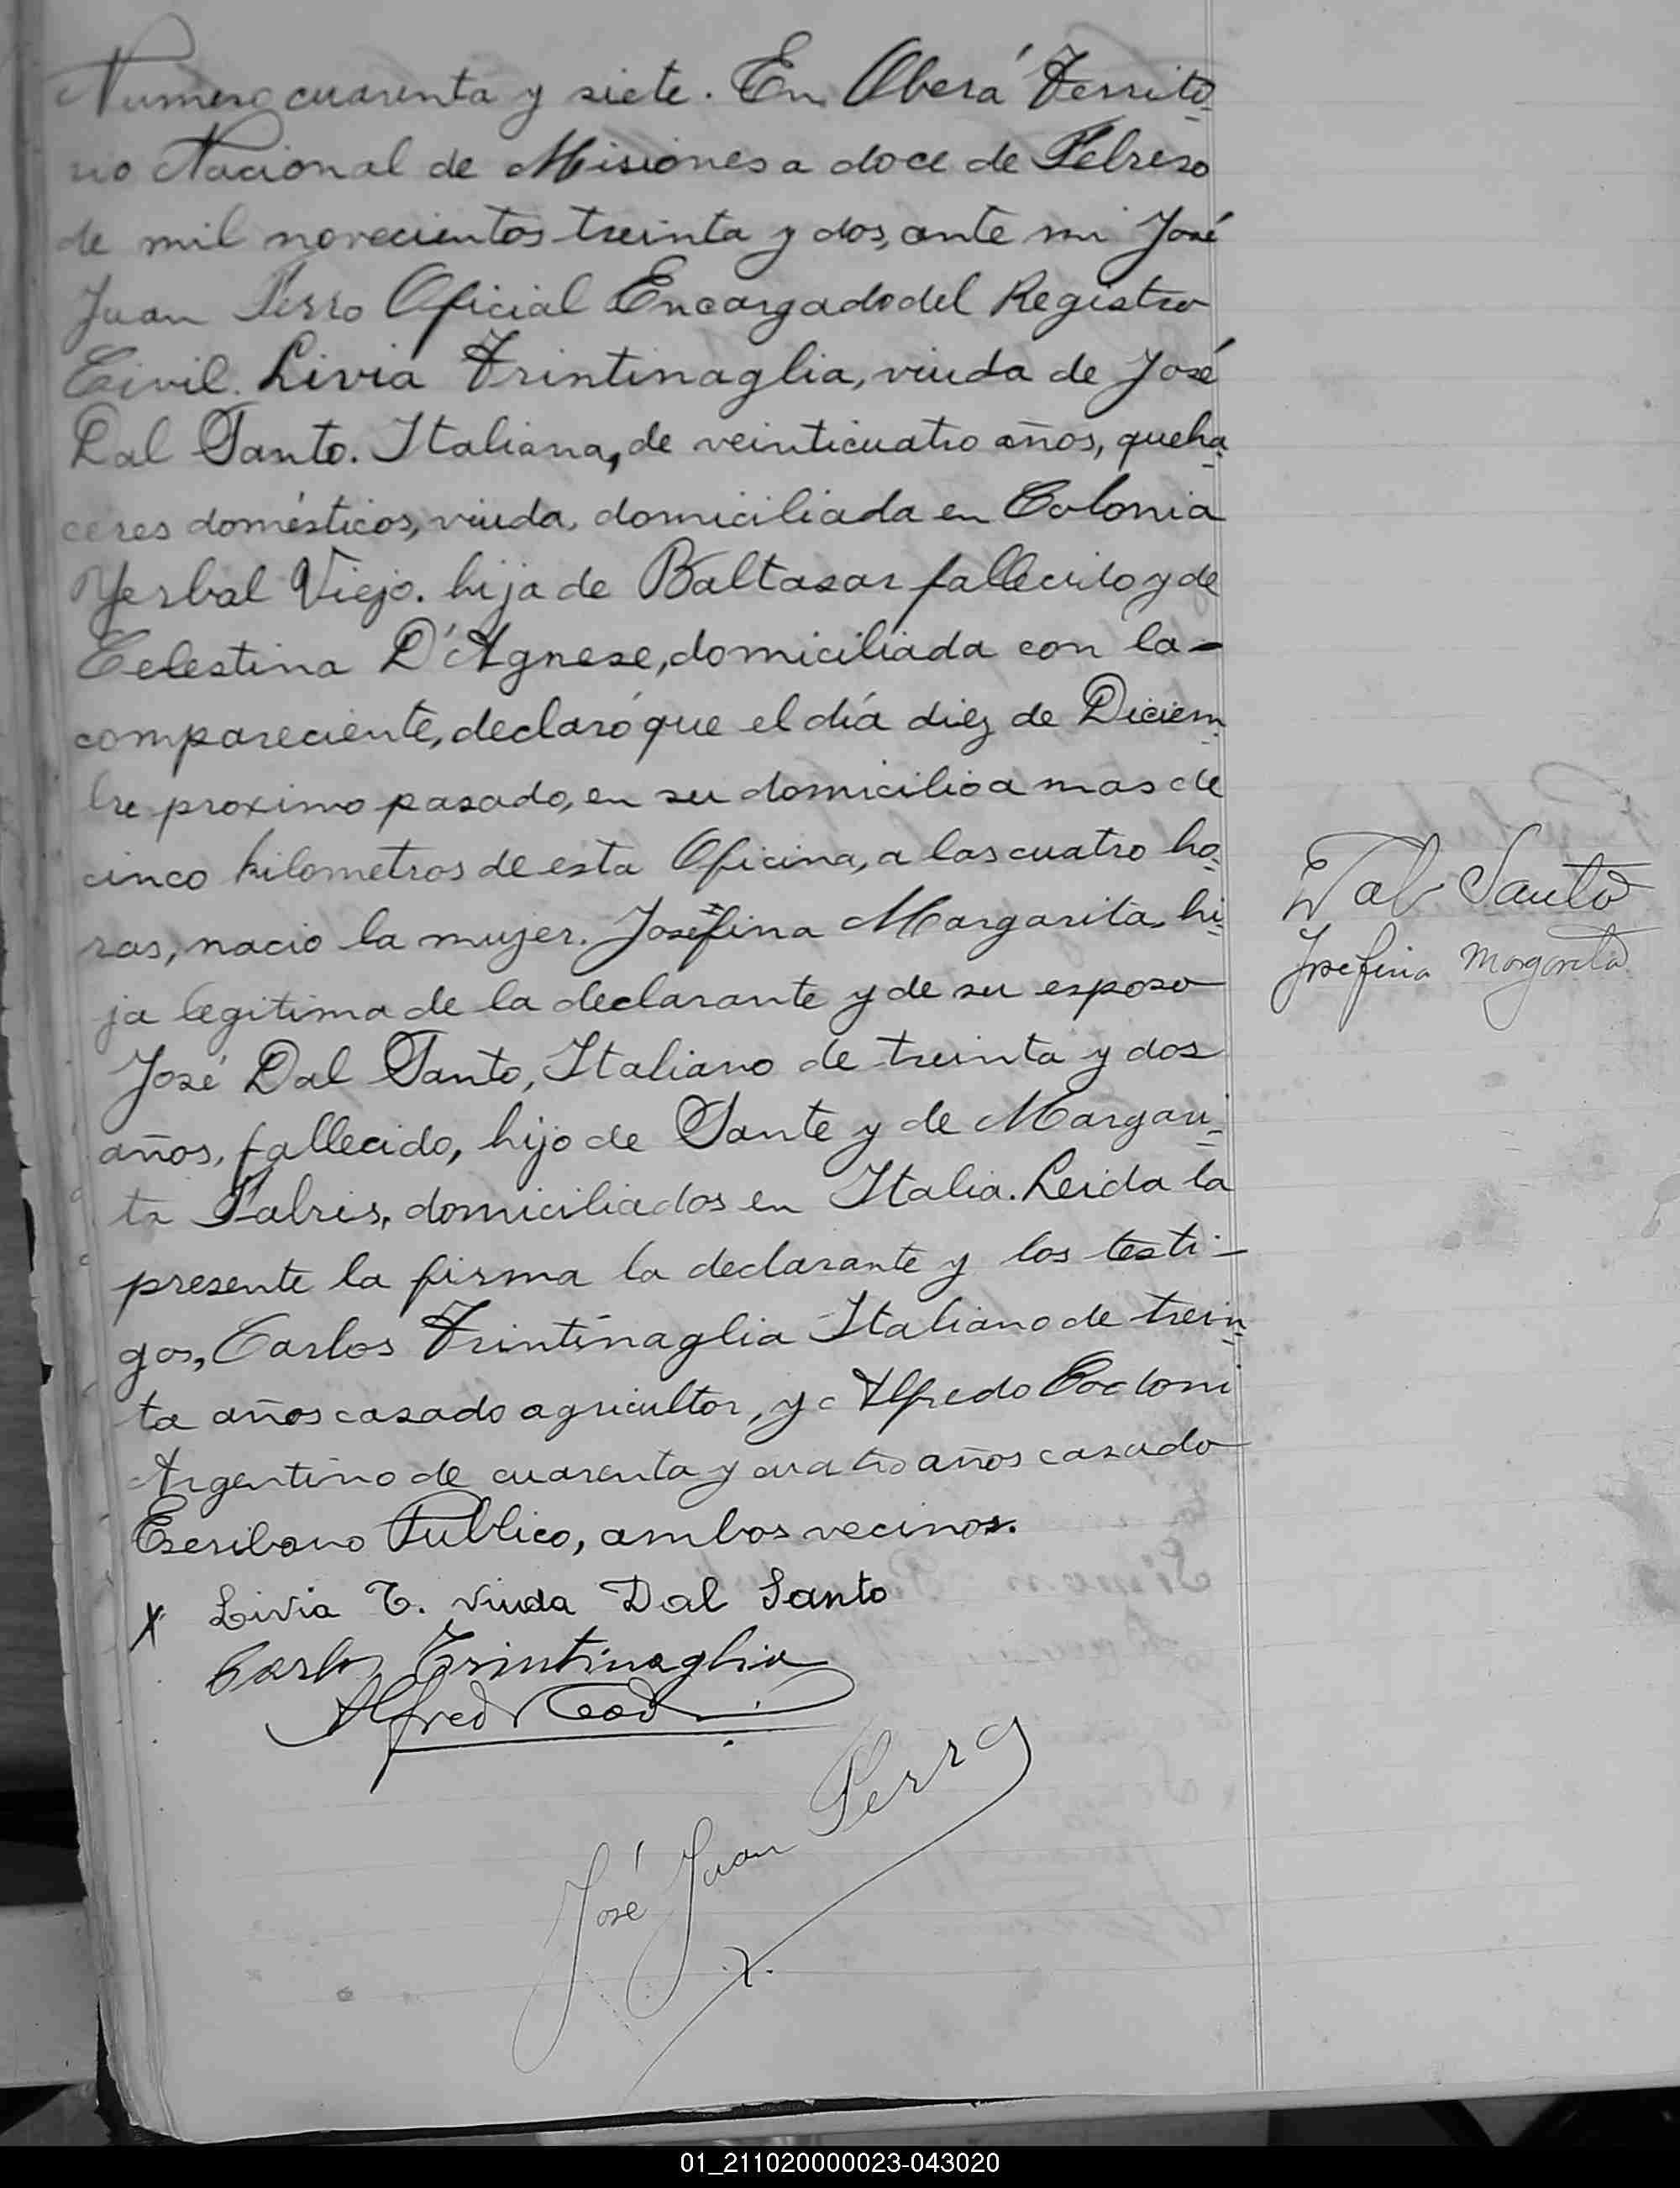 Numero cuarenta y siete. En Oberá Territo-
rio Nacional de Misiones a doce de Febrero
de mil novecientos treinta y dos, ante mi José
Juan Ferro Oficial Encargado del Registro
Civil. Livia Trintinaglia, viuda de José
Dal Santo. Italiana, de veinticuatro años, queha-
ceres domésticos, viuda, domiciliada en Colonia
Yerbal Viejo. hija de Baltasar fallecido y de
Celestina D'Agnese, domiciliada con la-
compareciente, declaró que el día diez de Diciem-
bre proximo pasado, en su domicilio a mas de
cinco kilometros de esta Oficina, a las cuatro ho-
ras, nacio la mujer. Josefina Margarita, hi-
ja legitima de la declarante y de su esposo
José Dal Santo, Italiano de treinta y dos
años, fallecido, hijo de Sante y de Margari-
ta Fabris, domiciliados en Italia. Leida la
presente la firma la declarante y los testi-
gos, Carlos Trintinaglia Italiano de trein-
ta años casado agricultor, y Alfredo
Argentino de cuarenta y cuatro años casado
Escribano Publico, ambos vecinos.
Livia T. viuda Dal Santo
Carlos Trintinaglia
Alfredo
José Juan Ferro
Dal Santo
Josefina Margarita
01_211020000023-043020